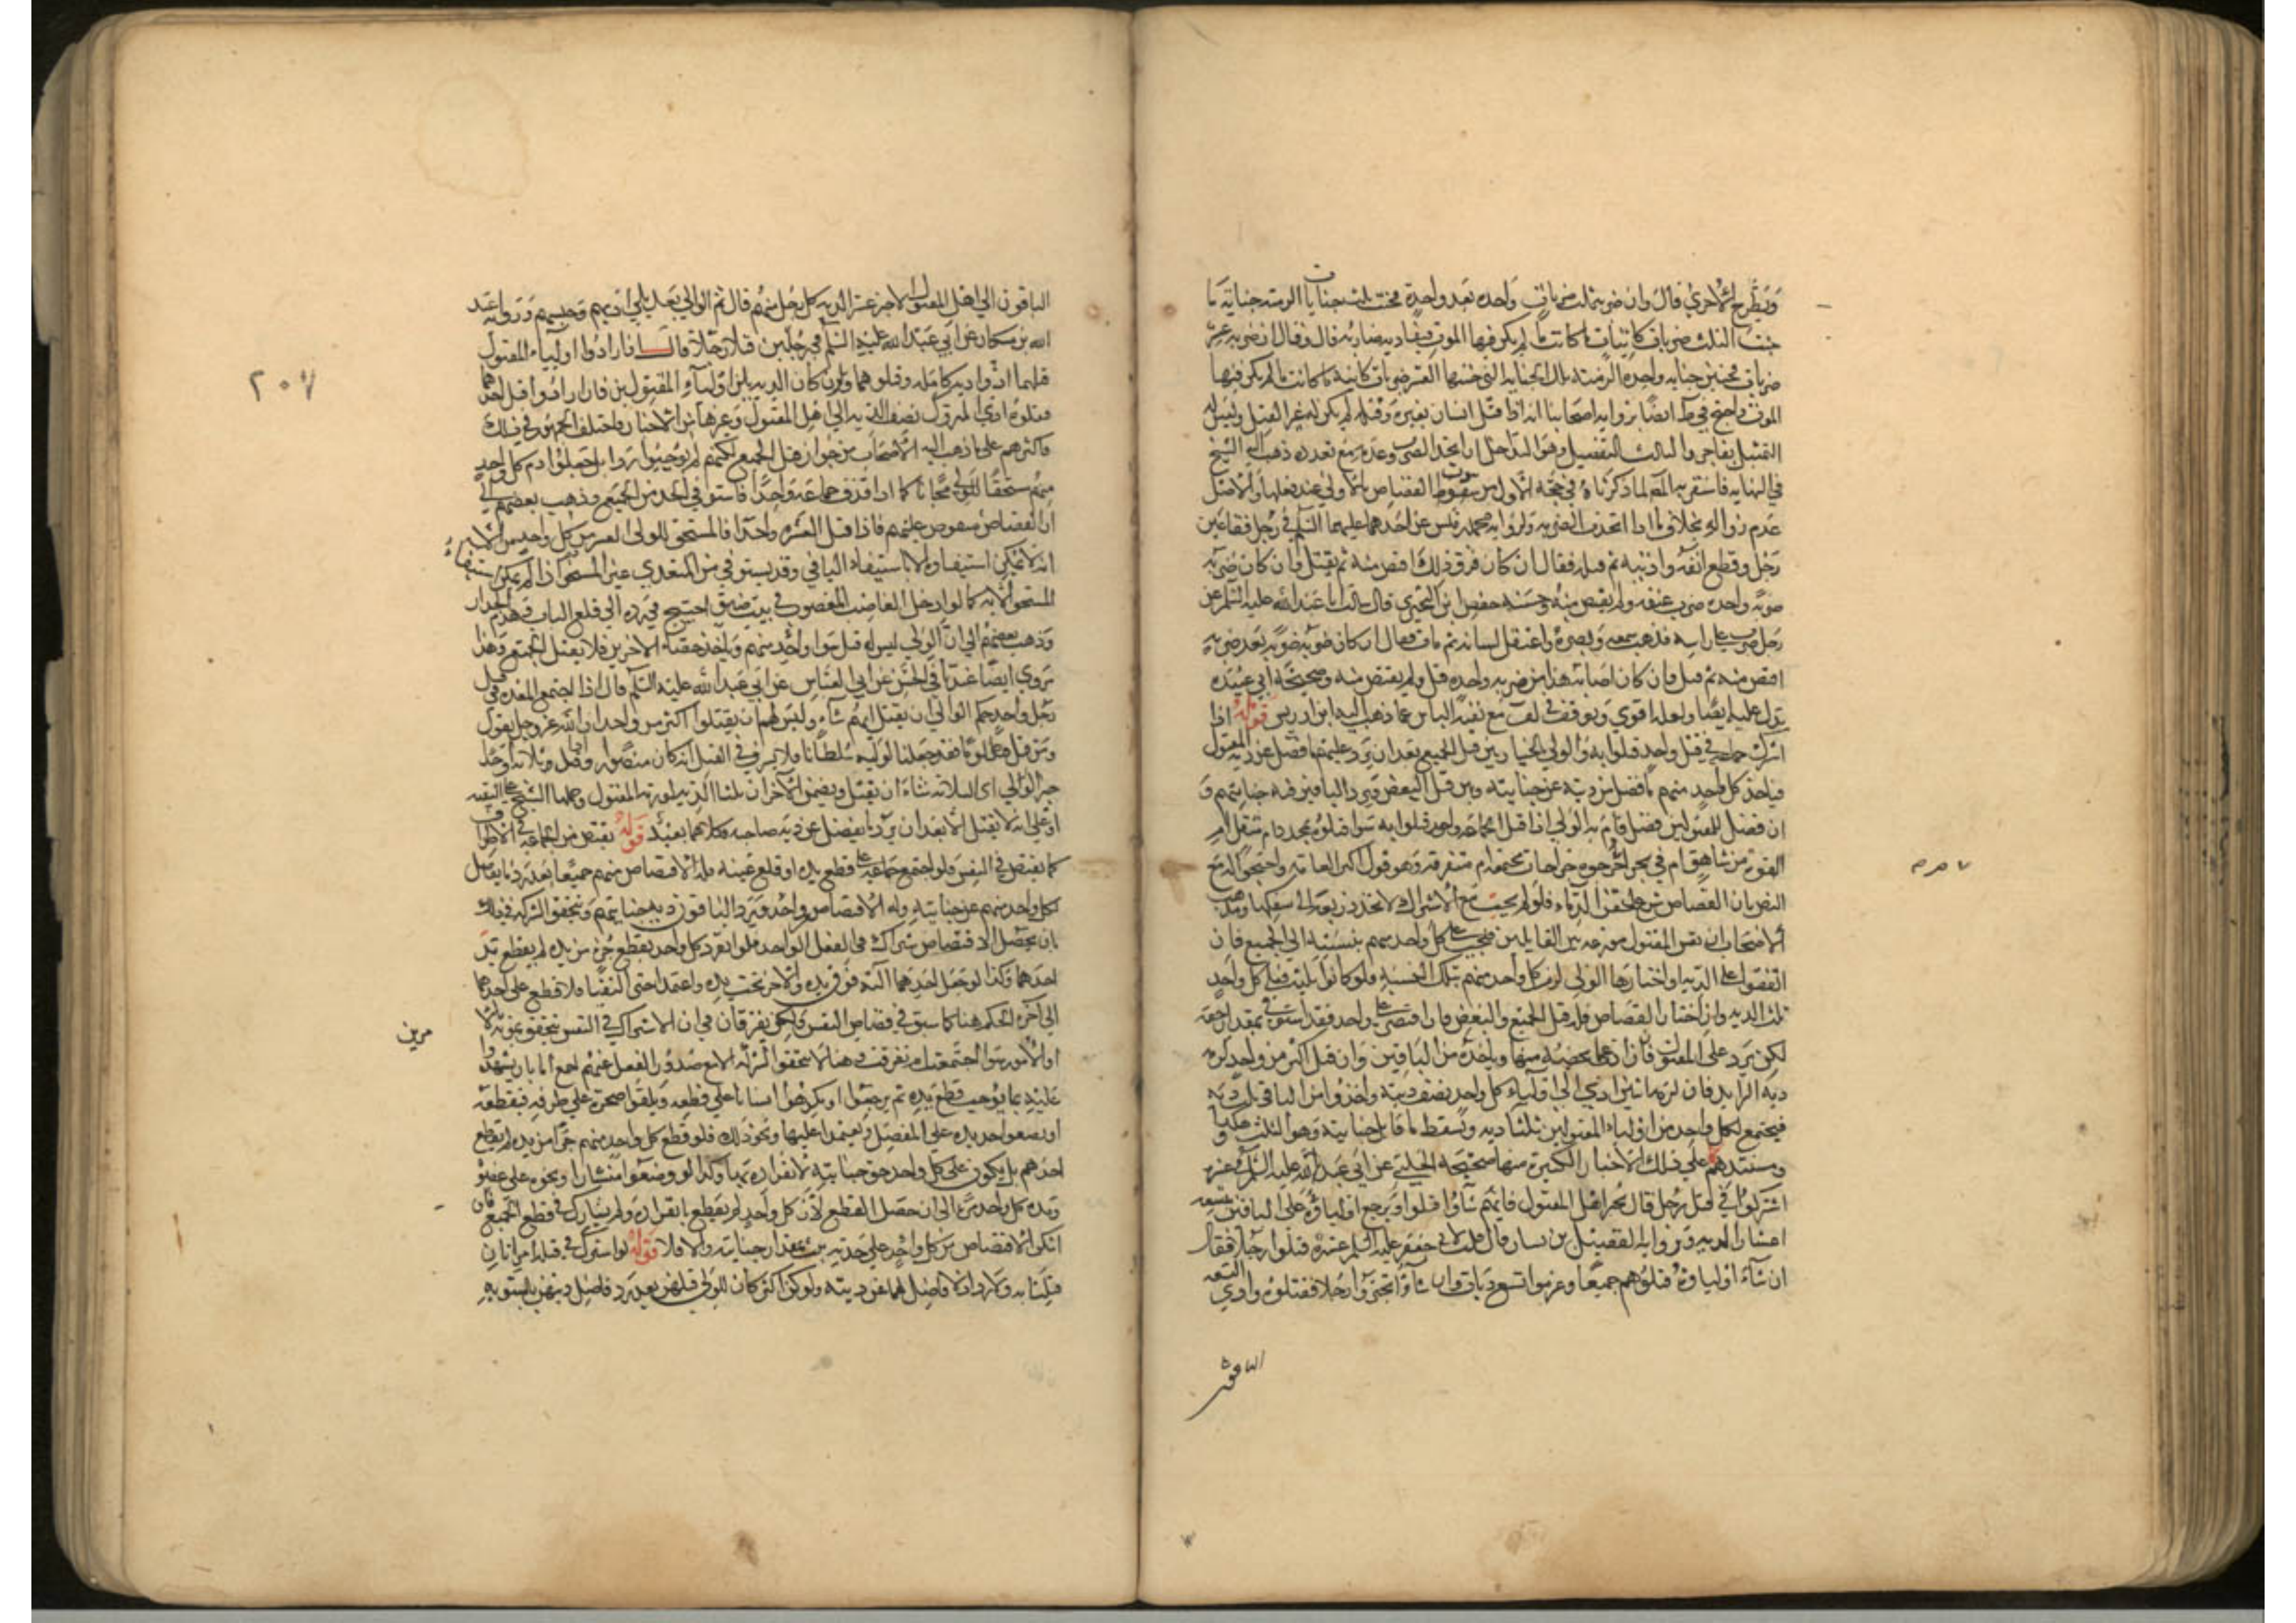 وتطرح الاخرى قال وان ضربه ثلث ضربات واحده بعد واحدة فجنت ثلث جنايات الزمته جناية ما
جنت الثلث ضربات كائنات ما كانت ما لم يكن فيها الموت فيقاد به ضاربه قال وقال ان ضربه عشر
ضربات فجنين جنايه واحده الزمته تلك الجنايه التي جنتها العشر ضربات كاينه ما كانت ما لم يكن فيها
الموت واحتج في ط ايضا برواية اصحابنا انه اذا مثل انسان بغيره وقتله لم يكن له غير القتل وليس له
التمثيل بصاحبه والثالث التفصيل وهو التداخل ان اتحد الضرب وعدمه مع تعدده ذهب اليه الشيخ
في النهايه واستقربه المصـ لما ذكرناه في حجة الاول من ثبوت القصاص بالاولى عند فعلها والاصل
عدم زواله بخلاف ما اذا اتحدت الضربه ولرواية محمد بن قيس عن احدهما عليهما السلم في رجل فقا عين
رجل وقطع انفه واذنيه ثم قتله فقال ان كان فرق ذلك اقتص منه ثم يقتل وان كان ضربه
ضربة واحده ضرب عنقه ولم يقتص منه وحسنة حفص ابن البختري قال سالت ابا عبد الله عليه السلم عن
رجل ضرب على راسه فذهب سمعه وبصره واعتقل لسانه ثم مات فقال ان كان ضربه ضربة بعد ضربة
اقتص منه ثم قتل وان كان اصابه هذا من ضربه واحده قتل ولم يقتص منه وصحيحة ابي عبيده
تدل عليه ايضا ولعله اقوى وتوقف في لف مع نفيه الباس عما ذهب اليه ابن ادريس قوله اذا
اشترك جماعة في قتل واحد قتلوا به والولي بالخيار بين قتل الجميع بعد ان يرد عليهم ما فضل عن دية المقتول
فياخذ كل واحد منهم ما فضل من ديته عن جنايته وبين قتل البعض ويرد الباقون دية جنايتهم و
ان فضل للمقتولين فضل قام به الولي اذا قتل الجماعة واحد قتلوا به سوا قتلوه بمحدد ام بمثقل ام
القوه من شاهق ام في بحر ام جرحوه جراحات مجتمعه ام متفرقه وهو قول اكثر العامة واحتجوا له مع
النص بان القصاص شرع لحقن الدماء فلو لم يجب مع الاشتراك لاتخذ ذريعة الى سفكها ومذهب
الاصحاب ان نفس المقتول موزعه على القاتلين فيجب على كل واحد منهم بنسبته الى الجميع فان
اتفقوا على الديه واختارها الولي لزم كل واحد منهم بتلك النسبة فلو كانوا ثلثة فعلى كل واحد
ثلث الديه وان اختار القصاص فله قتل الجميع والبعض فان اقتصر على واحد فقد استوفى بقدر حقه
لكن يرد على المقتول ما زاد عما يخصه منها وياخذه من الباقين وان قتل اكثر من واحد لزمه
دية الزايد فان لزمه اثنين ادى الى اولياء كل واحد نصف ديته واخذوا من الباقي ثلث ديه
فيجتمع لكل واحد من اولياء المقتولين ثلثا ديه ويسقط ما قابل جنايته وهو الثلث هكذا
ومستندهم على ذلك الاخبار الكثيرة منها صحيحة الحلبي عن ابي عبد الله عليه السلم في عشرة
اشتركوا في قتل رجل قال يخير اهل المقتول فايهم شاؤا قتلوا ويرجع اولياؤه على الباقين بتسعه
اعشار الديه ورواية الفضيل بن يسار قال قلت لابي جعفر عليه السلم عشرة قتلوا رجلا فقال
ان شاء اولياؤه قتلوهم جميعا وغرموا تسع ديات وان شاؤا تخيروا رجلا فقتلوه وادى التسعه
الباقون
٢٠٧
الباقون الى اهل المقتول الاخر عشر الديه كل رجل منهم قال ثم الوالي بعد يلي ادبهم وحبسهم ورواية عبد
الله بن مسكان عن ابي عبد الله عليه السلم في رجلين قتلا رجلا قال فان ارادوا اولياء المقتول
قتلهما ادوا دية كامله وقتلوهما وتكون الديه بين اولياء المقتولين فان ارادوا قتل احدهما
فقتلوه ادى المتروك نصف الديه الى اهل المقتول وغيرها من الاخبار واختلف الجمهور في ذلك
فاكثرهم على ما ذهب اليه الاصحاب من جواز قتل الجميع لكنهم لم يوجبوا ردا بل جعلوا دم كل واحد
منهم مستحقا للولي مجانا كما اذا قذف جماعة واحدا فاستوفى الحد من الجميع وذهب بعضهم الى
ان القصاص مفوض عليهم فاذا قتل العشره واحدا فالمستحق للولي العشر من كل واحد منهم الا
انه لا يمكن استيفاؤه الا باستيفاء الباقي وقد يستوفى من المتعدي غير المستحق اذا لم يمكن استيفاء
المستحق الا به كما لو ادخل الغاصب المغصوب في بيت ضيق احتيج في رده الى قلع الباب وهدم الجدار
وذهب بعضهم الى ان الولي ليس له قتل سوا واحد منهم وياخذ حصة الاخرين فلا يقتل الجميع وهذا
مروي ايضا عندنا في الحسن عن ابي العباس عن ابي عبد الله عليه السلم قال اذا اجتمع العده في قتل
رجل واحد حكم الوالي ان يقتل ايهم شاء وليس لهم ان يقتلوا اكثر من واحد ان الله عز وجل يقول
ومن قتل مظلوما فقد جعلنا لوليه سلطانا فلا يسرف في القتل انه كان منصورا واذا قتل ثلاثة واحدا
خير الوالي اي الثلاثه شاء ان يقتل ويضمن الاخران ثلثا الديه لورثة المقتول وحملها الشيخ على التقيه
او على انه لا يقتل الا بعد ان يرد ما يفضل عن دية صاحبه وكلاهما بعيد قوله يقتص من الجماعة في الاطراف
كما يقتص في النفس فلو اجتمع جماعة على قطع يده او قلع عينه فله الاقتصاص منهم جميعا بعد رد ما يفضل
لكل واحد منهم عن جنايته وله الاقتصاص من واحد ويرد الباقون دية جنايتهم وتتحقق الشركة في ذلك
بان يحصل الاشتراك في الفعل الواحد فلو انفرد كل واحد بقطع جزء من يده لم يقطع يد
احدهما وكذا لو جعل احدهما الته فوق يده والاخر تحت يده واعتمدا حتى التقتا فلا قطع على احدهما
الى اخره الحكم هنا كما سبق في قصاص النفس ولكن يفترقان في ان الاشتراك في النفس يتحقق بموته
بالامور سوا اجتمعت ام تفرقت وهنا لا تتحقق الشركة الا مع صدور الفعل عنهم اجمع اما بان يشهدوا
عليه بما يوجب قطع يده ثم يرجعوا او يكرهوا انسانا على قطعه او يلقوا صخرة على طرفه فيقطعه
او يضعوا حديده على المفصل ويعتمدوا عليها ونحو ذلك فلو قطع كل واحد منهم جزءا من يده لم يقطع
احدهم بل يكون على كل واحد حق جنايته لانفراده بها وكذا لو وضعوا منشارا ونحوه على عضو
ومده كل واحد مرة الى ان حصل القطع لان كل واحد لم يقطع بانفراده ولم يشارك في قطع الجميع فان
امكن الاقتصاص من كل واحد على حدته بقدر جنايته والا فلا قوله لو اشترك في قتله امراتان
قتلتا به ولا رد اذ لا فاضل لهما عن ديته ولو كن اكثر كان للولي قتلهن بعد رد فاضل ديتهن بالسويه